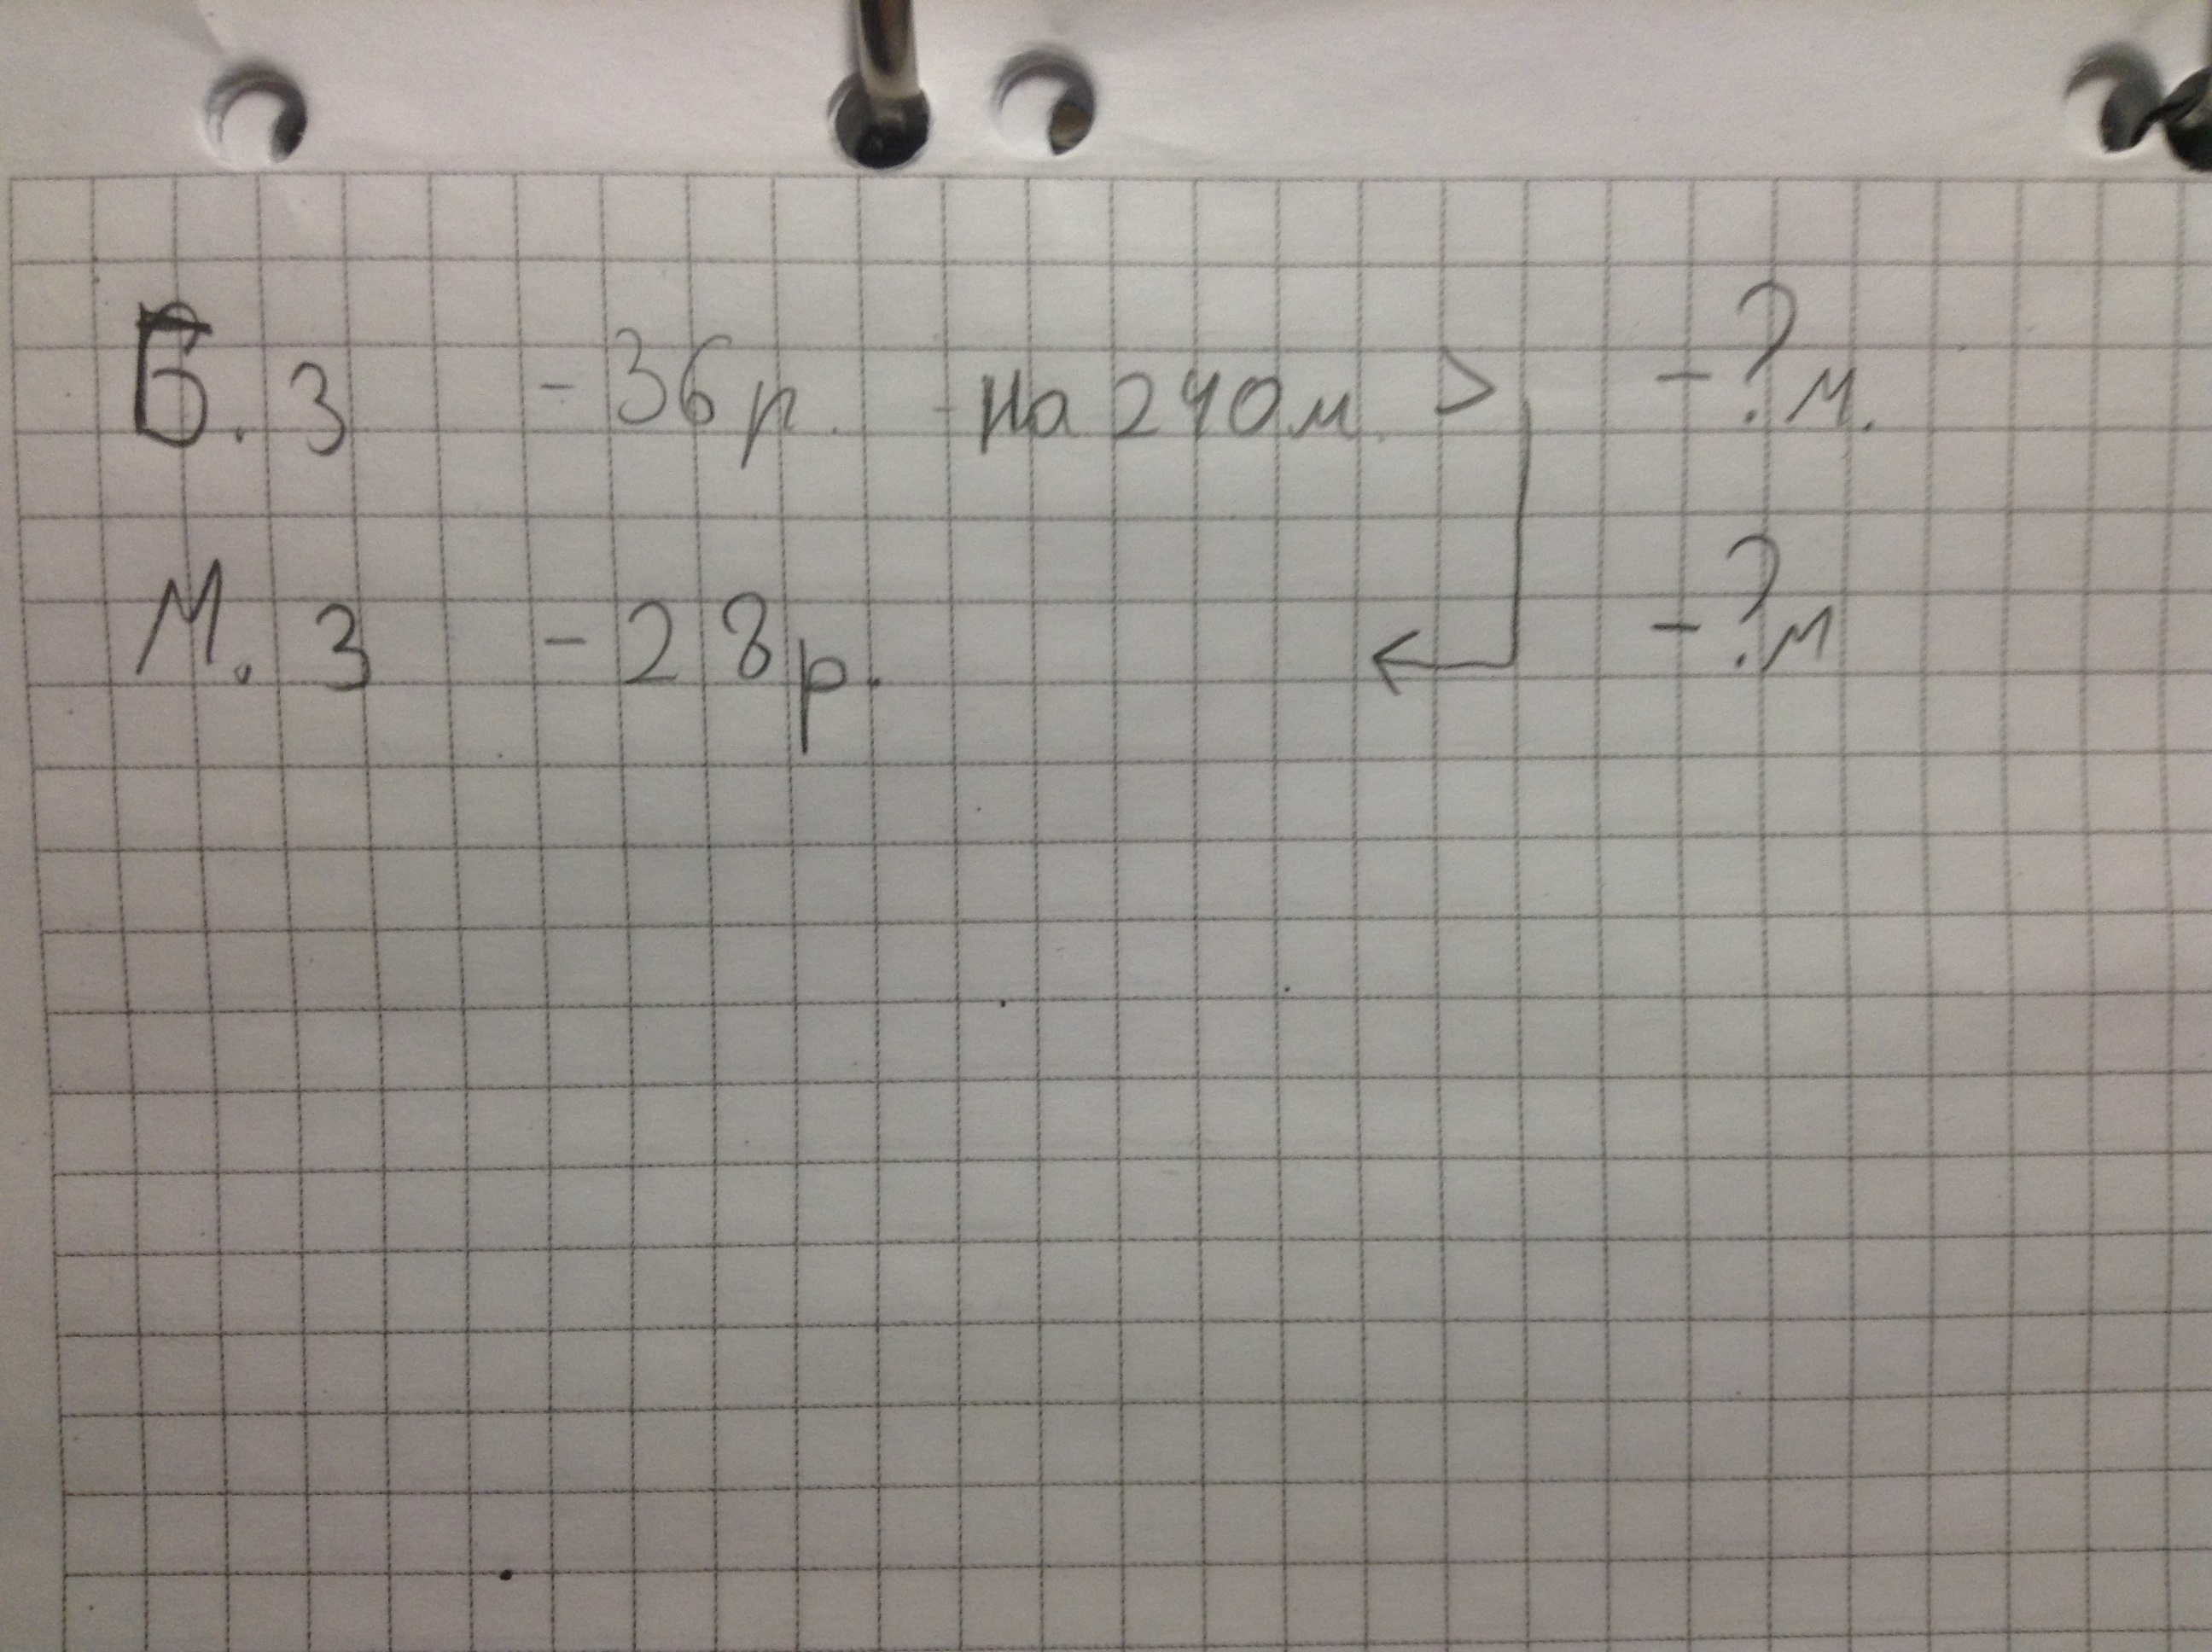 Б. З - 36 р. - на 240 м. > - ? м.
М. З - 28 р. - ? м